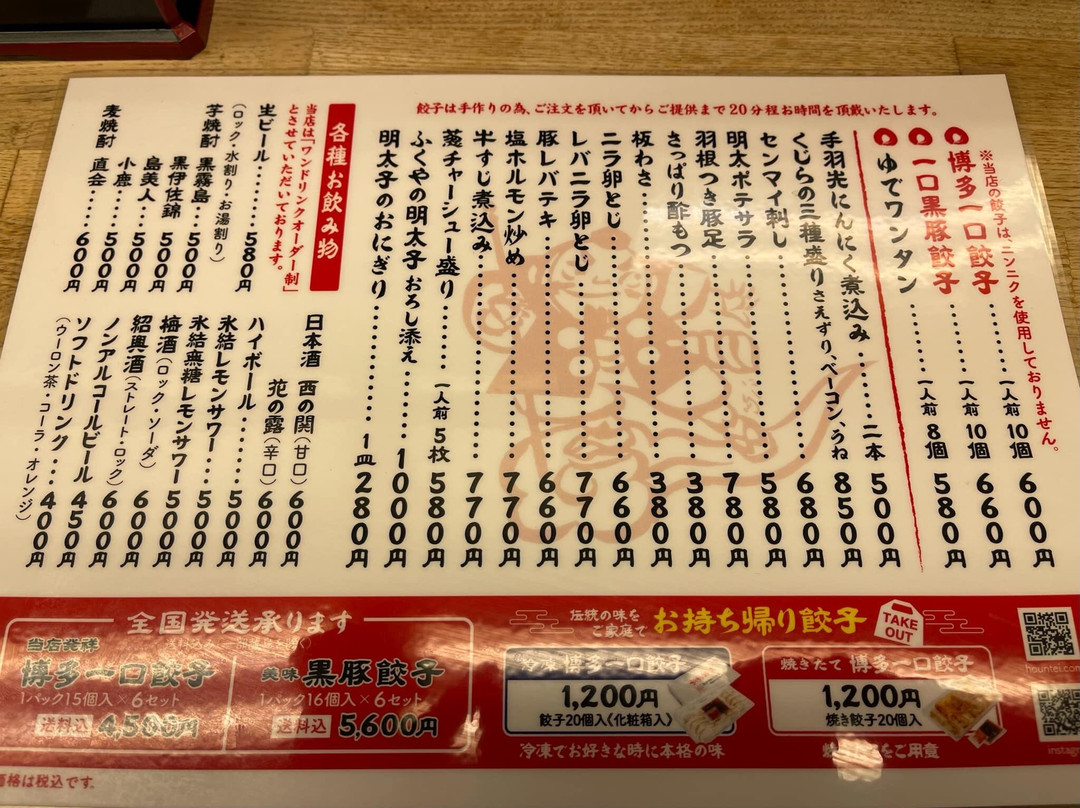 餃子は手作りの為、ご注文を頂いてからご提供まで20分程お時間を頂戴いたします。
※当店の餃子は、ニンニクを使用しておりません。
博多一口餃子……一人前 10個 600円
一口黒豚餃子……一人前 10個 660円
ゆでワンタン……一人前 8個 580円
手羽先にんにく煮込み……二本 500円
くじらの三種盛りさえずり、ベーコン、うね 850円
センマイ刺し……680円
明太ポテサラ……580円
羽根つき豚足……780円
さっぱり酢もつ……380円
板わさ……380円
ニラ卵とじ……660円
レバニラ卵とじ……770円
豚レバテキ……660円
塩ホルモン炒め……770円
牛すじ煮込み……770円
葱チャーシュー盛り……一人前 5枚 580円
ふくやの明太子おろし添え……1000円
明太子のおにぎり……1皿 280円
各種お飲み物
当店は「ワンドリンクオーダー制」
とさせていただいております。
生ビール……580円
(ロック・水割り・お湯割り)
芋焼酎 黒霧島……500円
黒伊佐錦 500円
島美人……500円
麦焼酎 小鹿……500円
直会……600円
日本酒 西の関(甘口) 600円
花の露(辛口) 600円
ハイボール……500円
氷結レモンサワー……500円
氷結無糖レモンサワー 500円
梅酒(ロック・ソーダ) 600円
紹興酒(ストレート・ロック) 600円
ノンアルコールビール 450円
ソフトドリンク……400円
(ウーロン茶・コーラ・オレンジ)
全国発送承ります
当店発祥
博多一口餃子
1パック15個入×6セット
送料込 4,500円
美味 黒豚餃子
1パック16個入×6セット
送料込 5,600円
伝統の味を
ご家庭で
お持ち帰り餃子
TAKE
OUT
冷凍 博多一口餃子
1,200円
餃子20個入《化粧箱入》
冷凍でお好きな時に本格の味
焼きたて 博多一口餃子
1,200円
焼き餃子20個入
をご用意
hountei.com
価格は税込です。